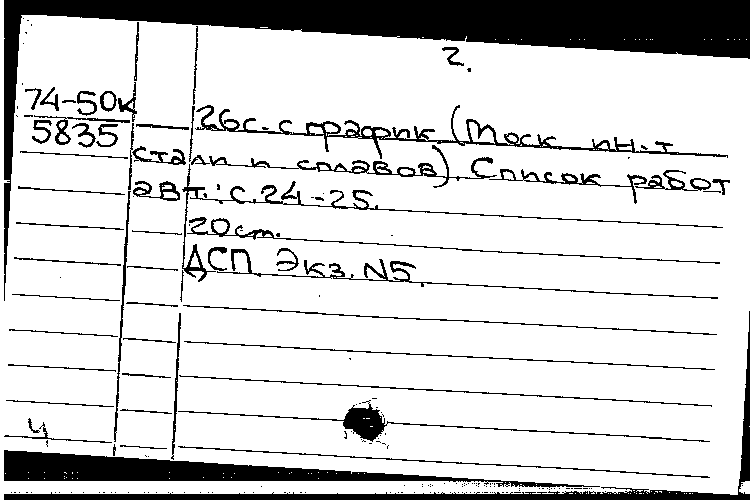 2.
74-50к
5835
26с. с график (Моск ин-т
стали и сплавов). Список работ
авт.: с.24-25.
20 см.
ДСП Экз. N5.
4